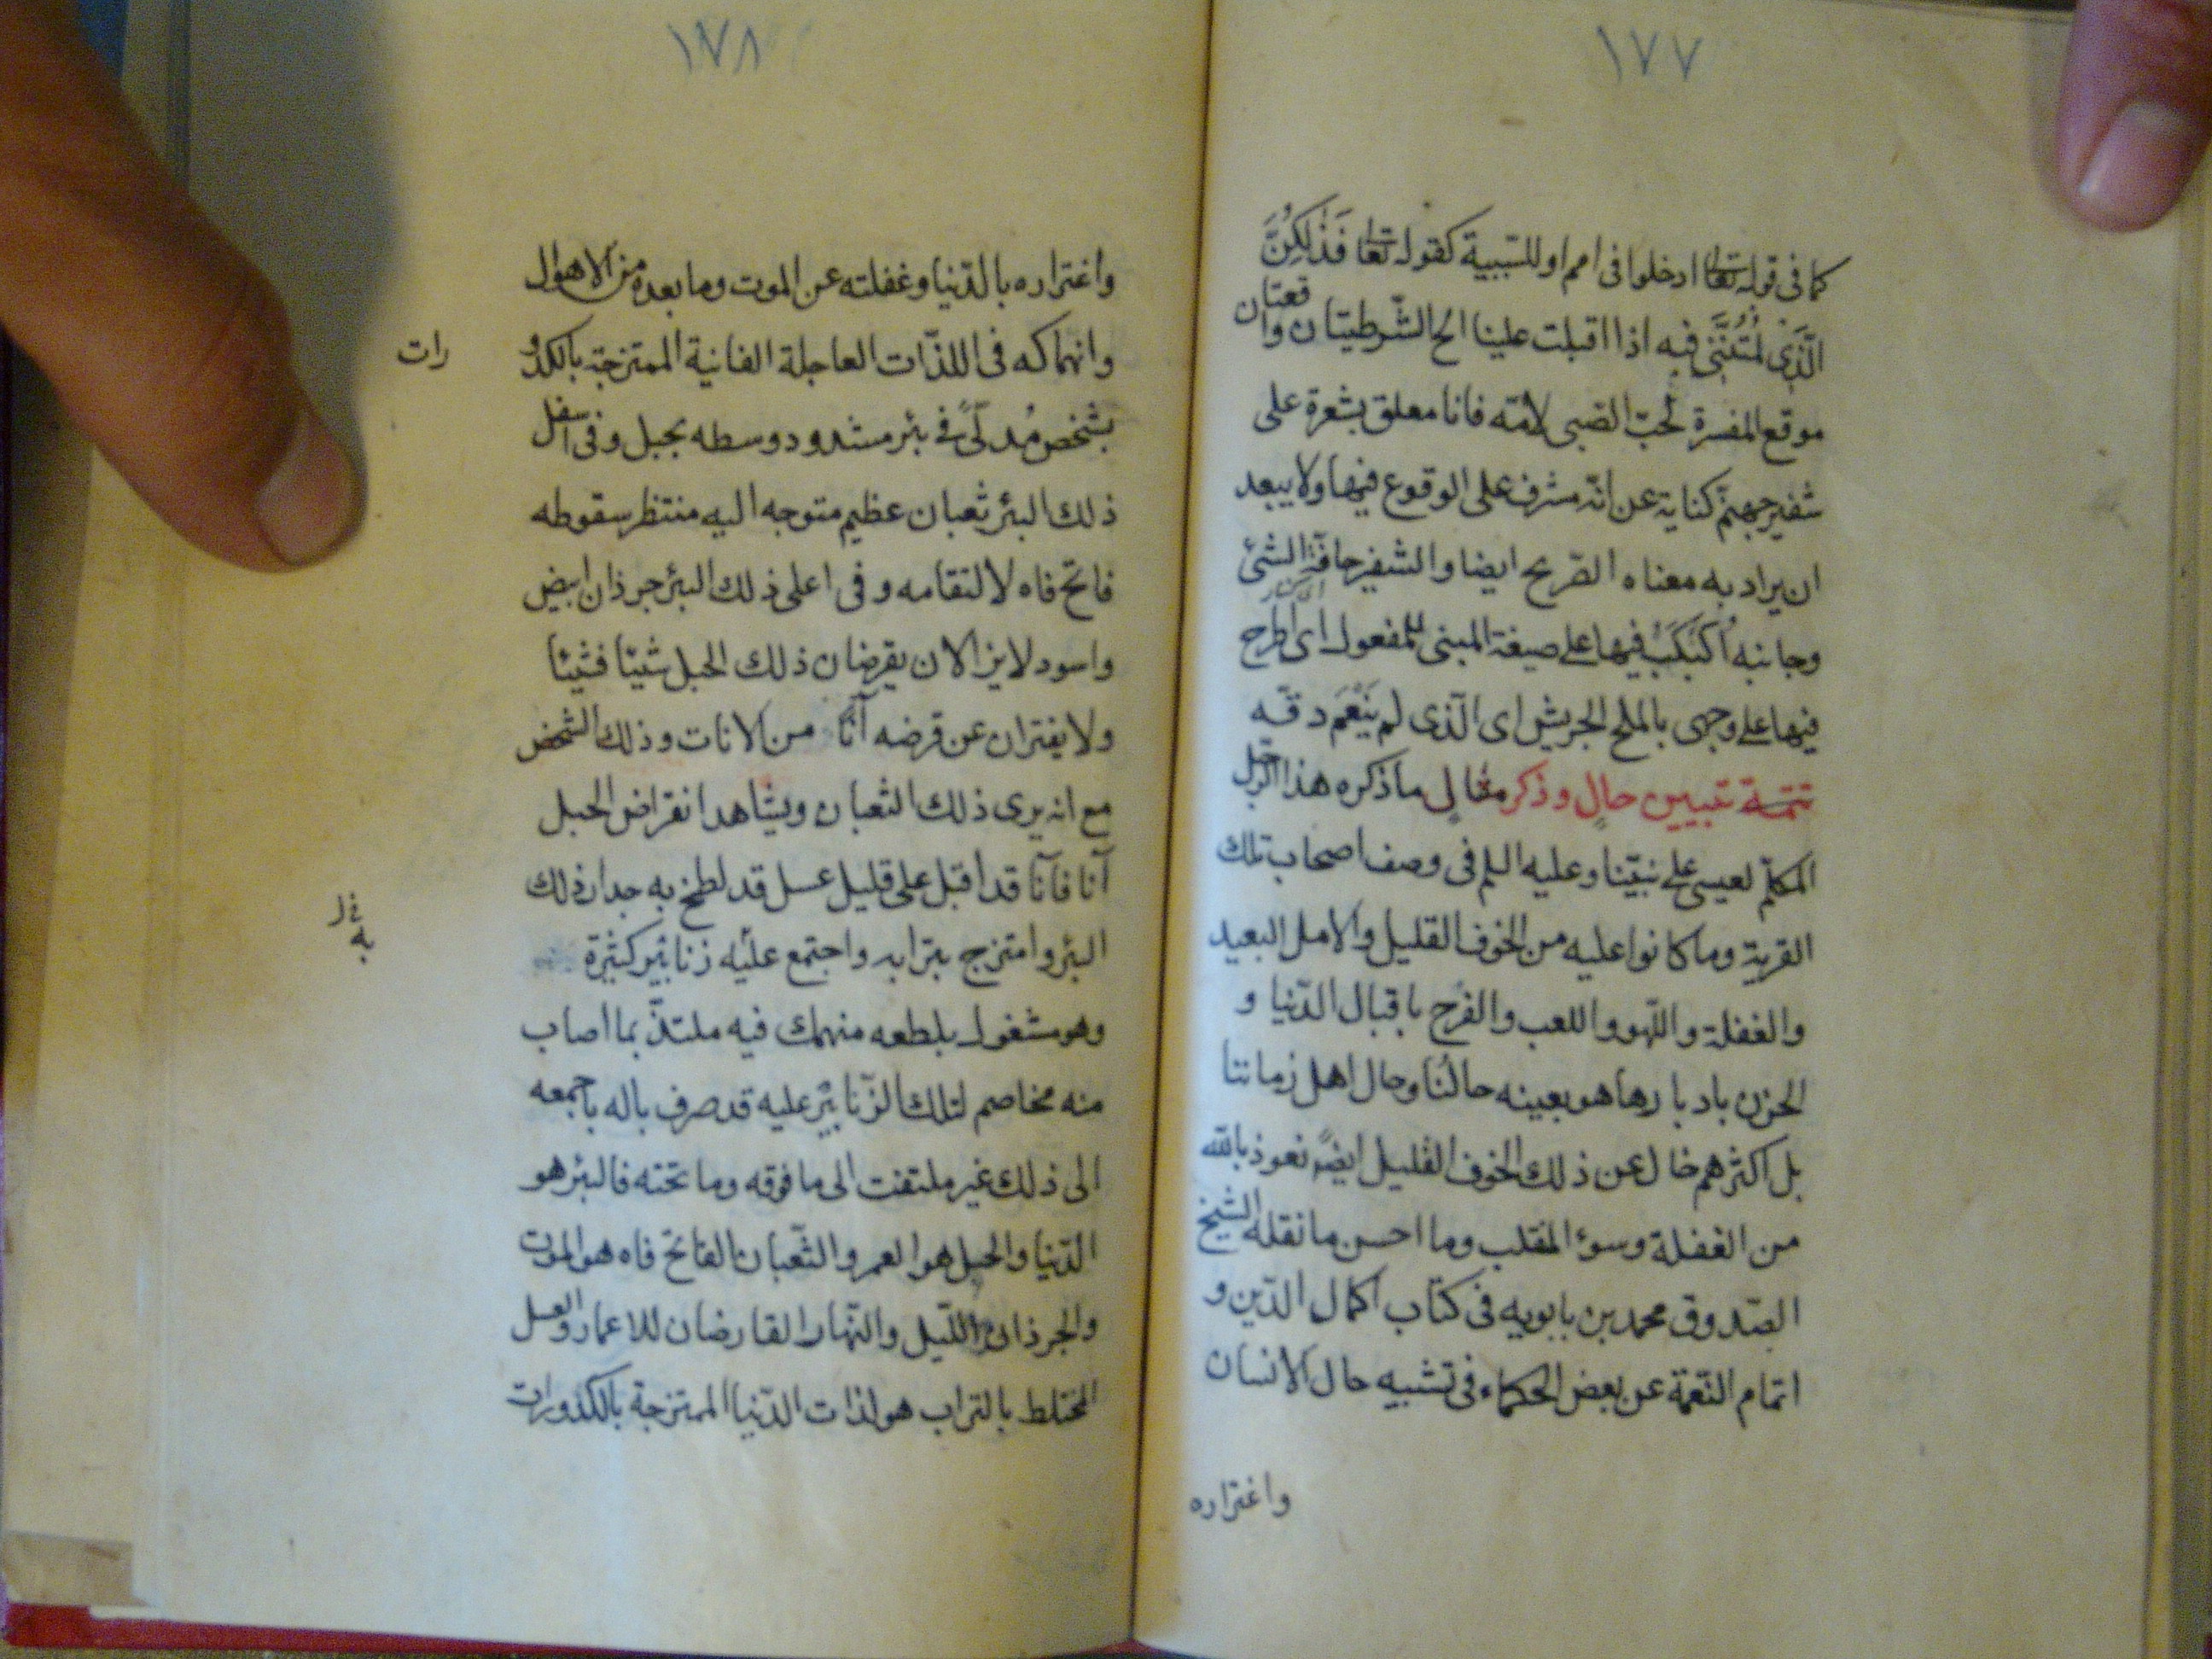 ١٧٧
كما فى قوله تعالى ادخلوا فى امم او للسّببية كقوله تعالى فَذٰلِكُنَّ
الَّذى لُمْتُنَّنى فيه اذا اقبلت علينا الخ الشّرطيتان واقعتان
موقع المفسرة لحبّ الصّبى لأمّه فانا معلق بشعرة على
شفير جهنّم كناية عن انّه مشرف على الوقوع فيها ولا يبعد
ان يراد به معناه الصّريح ايضا والشفير حافّة الشئ
وجانبه اُكَبْكَبُ فيها على صيغة المبنى للمفعول اى اطرح
فيها على وجهى بالملح الجريش اى الّذى لم يَنْعَم دقّه
تتمة تبيين حالٍ وذكر مثالٍ ما ذكره هذا الرّجل
المكلّم لعيسى على نبيّنا وعليه السلم فى وصف اصحاب تلك
القرية وما كانوا عليه من الخوف القليل والامل البعيد
والغفلة واللّهو واللعب والفرح باقبال الدّنيا و
الحزن بادبارها هو بعينه حالنا وحال اهل زماننا
بل اكثرهم خال عن ذلك الخوف القليل ايضً نعوذ بالله
من الغفلة وسوء المنقلب وما احسن ما نقله الشيخ
الصّدوق محمد بن بابويه فى كتاب اكمال الدّين و
اتمام النّعمة عن بعض الحكماء فى تشبيه حال الانسان
واغتراره
١٧٨
واغتراره بالدّنيا وغفلته عن الموت وما بعده من الاهوال
وانهماكه فى اللذّات العاجلة الفانية الممتزجة بالكدو
رات
بشخص مُدلّىً فى بئر مشدود وسطه بحبل وفى اسفل
ذلك البئر ثعبان عظيم متوجه اليه منتظر سقوطه
فاتح فاه لالتقامه وفى اعلى ذلك البئر جرذان ابيض
واسود لا يزالان يقرضان ذلك الحبل شيئا فشيئا
ولا يفتران عن قرضه آنًا من الانات وذلك الشخص
مع انه يرى ذلك الثعبان ويشاهد انقراض الحبل
آنا فآنا قد اقبل على قليل عسل قد لطخ به جدار ذلك
البئر وامتزج بترابه واجتمع عليه زنابير كثيرة
وهو مشغول بلطعه منهمك فيه ملتذّ بما اصاب
منه مخاصم لتلك الزّنابير عليه قد صرف باله باجمعه
الى ذلك غير ملتفت الى ما فوقه وما تحته فالبئر هو
الدّنيا والحبل هو العمر والثّعبان الفاتح فاه هو الموت
والجرذان اللّيل والنّهار القارضان للاعمار والعسل
المختلط بالتراب هو لذات الدّنيا الممتزجة بالكدورات